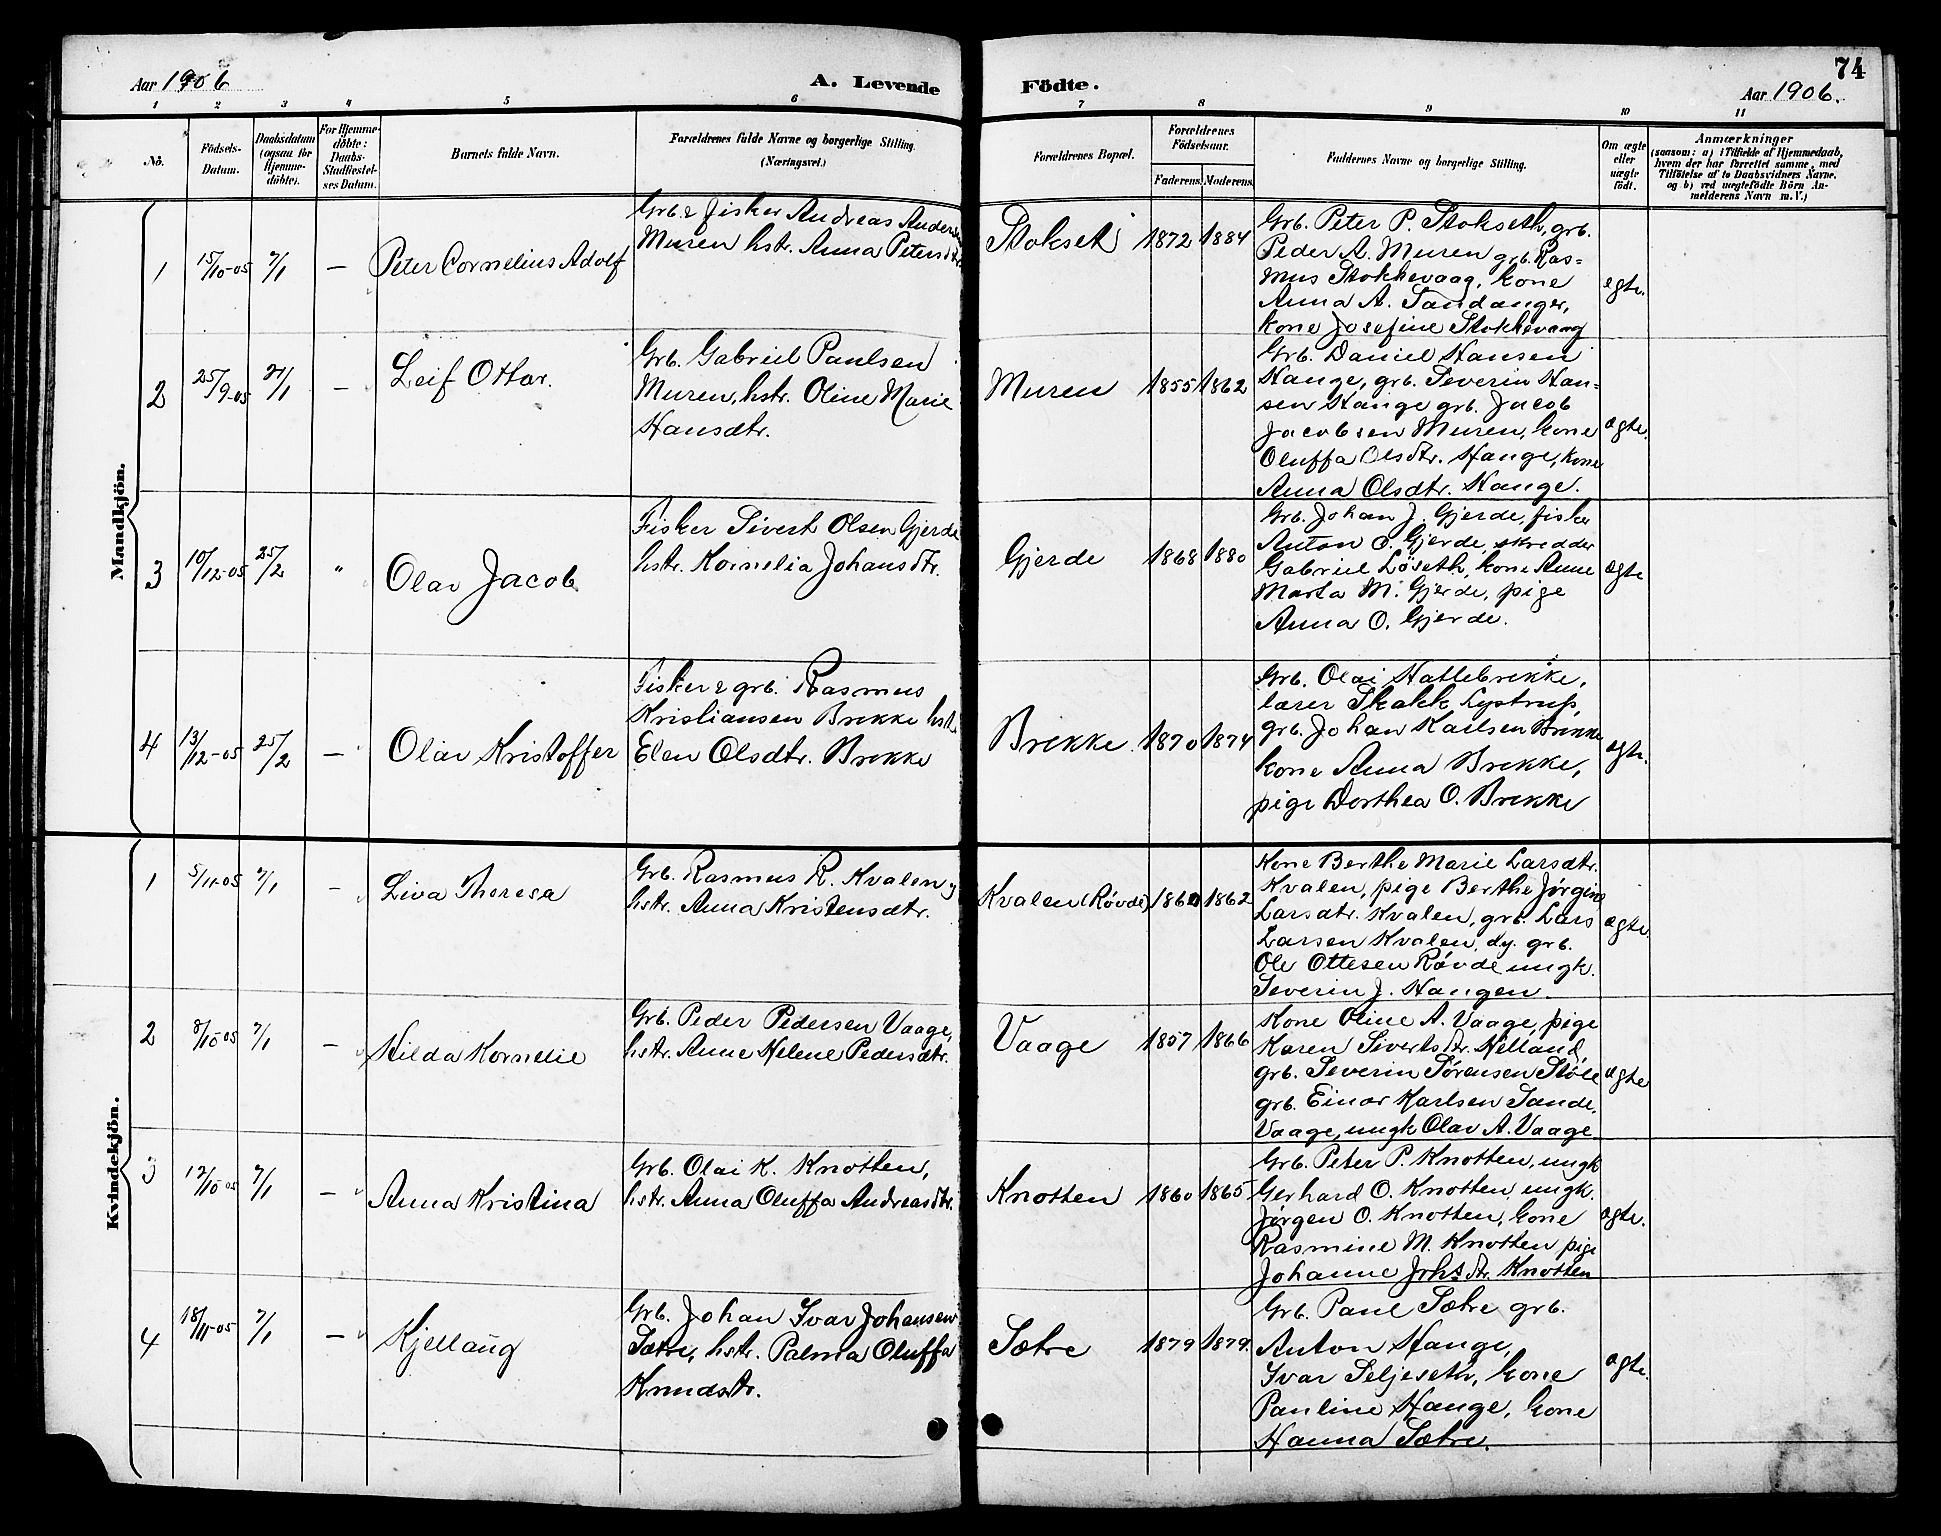 Aar 1906
A. Levende
Födte.
74
Aar 1906.
1 2 3 4 5 6 7 8 9 10 11
No.
Födsels-
Datum.
Daabsdatum
(ogsaa for
Hjemme-
döbte).
For Hjemme-
döbte:
Daabs-
Stadfæstel-
ses Datum.
Barnets fulde Navn.
Forældrenes fulde Navne og borgerlige Stilling.
(Næringsvei.)
Forældrenes Bopæl.
Forældrenes
Födselsaar.
Faderens. Moderens.
Faddernes Navne og borgerlige Stilling.
Om ægte
eller
uægte
födt.
Anmærkninger
(saasom: a) i Tilfælde af Hjemmedaab,
hvem der har forrettet samme, med
Tilföielse af to Daabsvidners Navne,
og b) ved uægtefödte Börn An-
melderens Navn m. V.)
Mandkjön.
1 15/10-05 7/1 — Peter Cornelius Adolf
Grb. & fisker Andreas Andersen
Muren hstr. Anna Petersdtr.
Stokset 1872 1884
Grb. Peter P. Stokseth, grb.
Peder A. Muren grb. Ras-
mus Stokkevaag, kone
Anna A. Sandanger,
kone Josefine Stokkevaag
egte.
2 25/9-05 21/1 — Leif Ottar.
Grb. Gabriel Paulsen
Muren, hstr. Oline Marie
Hansdtr.
Muren 1855 1862
Grb. Daniel Hansen
Hauge, grb. Severin Han-
sen Hauge grb. Jacob
Jacobsen Muren, kone
Oluffa Olsdtr. Hauge, kone
Anna Olsdtr. Hauge.
ægte.
3 10/12-05 25/2 " Olav Jacob
Fisker Sivert Olsen Gjerde
hstr. Kornelia Johansdtr.
Gjerde 1868 1880
Grb. Johan J. Gjerde, fisker
Anton O. Gjerde, skredder
Gabriel Løseth, kone Anne
Marta M. Gjerde, pige
Anna O. Gjerde.
ægte
4 13/12-05 25/2 — Olav Kristoffer
Fisker & grb. Rasmus
Kristiansen Brekke hstr.
Elen Olsdtr. Brekke
Brekke. 1870 1874
Grb. Olai Hallebrekke,
lærer Skakk Lystrup,
grb. Johan Karlsen Brekke
kone Anna Brekke,
pige Dorthea O. Brekke
ægte.
Kvindekjön.
1 5/11-05 7/1 — Liva Theresa
Grb. Rasmus R. Kvalen og
hstr. Anna Kristensdtr.
Kvalen (Røvde) 1862
Kone Berthe Marie Larsdtr.
Kvalen, pige Berthe Jørgine
Larsdtr. Kvalen, grb. Lars
Larsen Kvalen, dy. grb.
Ole Ottesen Røvde ungk.
Severin J. Haugen.
ægte.
2 8/10-05 7/1 — Hilda Kornelie
Grb. Peder Pedersen Vaage,
hstr. Anne Helene Pedersdtr.
Vaage 1857 1866
Kone Oline A. Vaage, pige
Karen Sivertsdtr. Helland,
grb. Severin Sørensen Støle
grb. Einar Karlsen Sande,
Vaage, ungk Olav A. Vaage
ægte
3 12/10-05 7/1 — Anna Kristina
Grb. Olai K. Knotten,
hstr. Anna Oluffa Andreasdtr.
Knotten 1860 1865
Grb. Peter P. Knotten, ungk
Gerhard O. Knotten, ungk.
Jørgen O. Knotten, kone
Rasmine M. Knotten pige
Johanne Knotten
ægte.
4 18/11-05 7/1 — Kjellaug
Grb. Johan Ivar Johansen
Sætre, hstr. Palma Oluffa
Knudsdtr.
Sætre 1879 1879.
Grb. Paul Sætre grb.
Anton Hauge,
Ivar Seljeseth, kone
Pauline Hauge, kone
Hanna Sætre.
ægte.